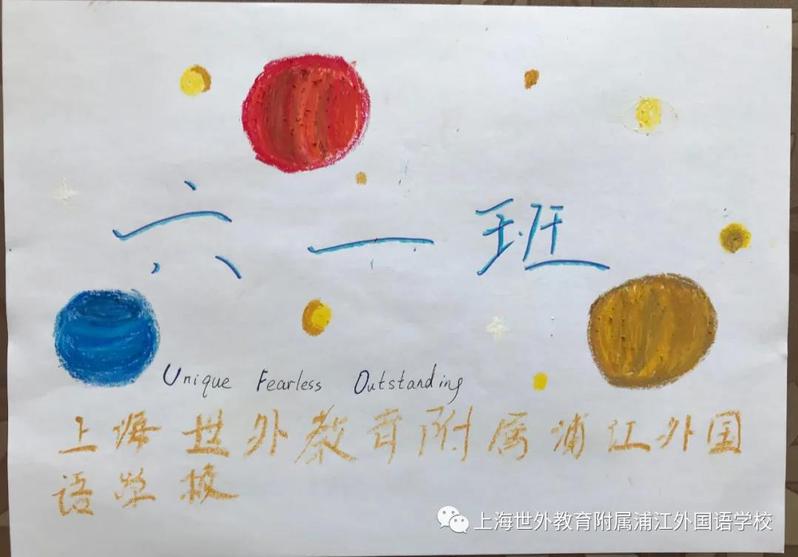 六一班
Unique Fearless Outstanding
上海世外教育附属浦江外国
语学校
上海世外教育附属浦江外国语学校